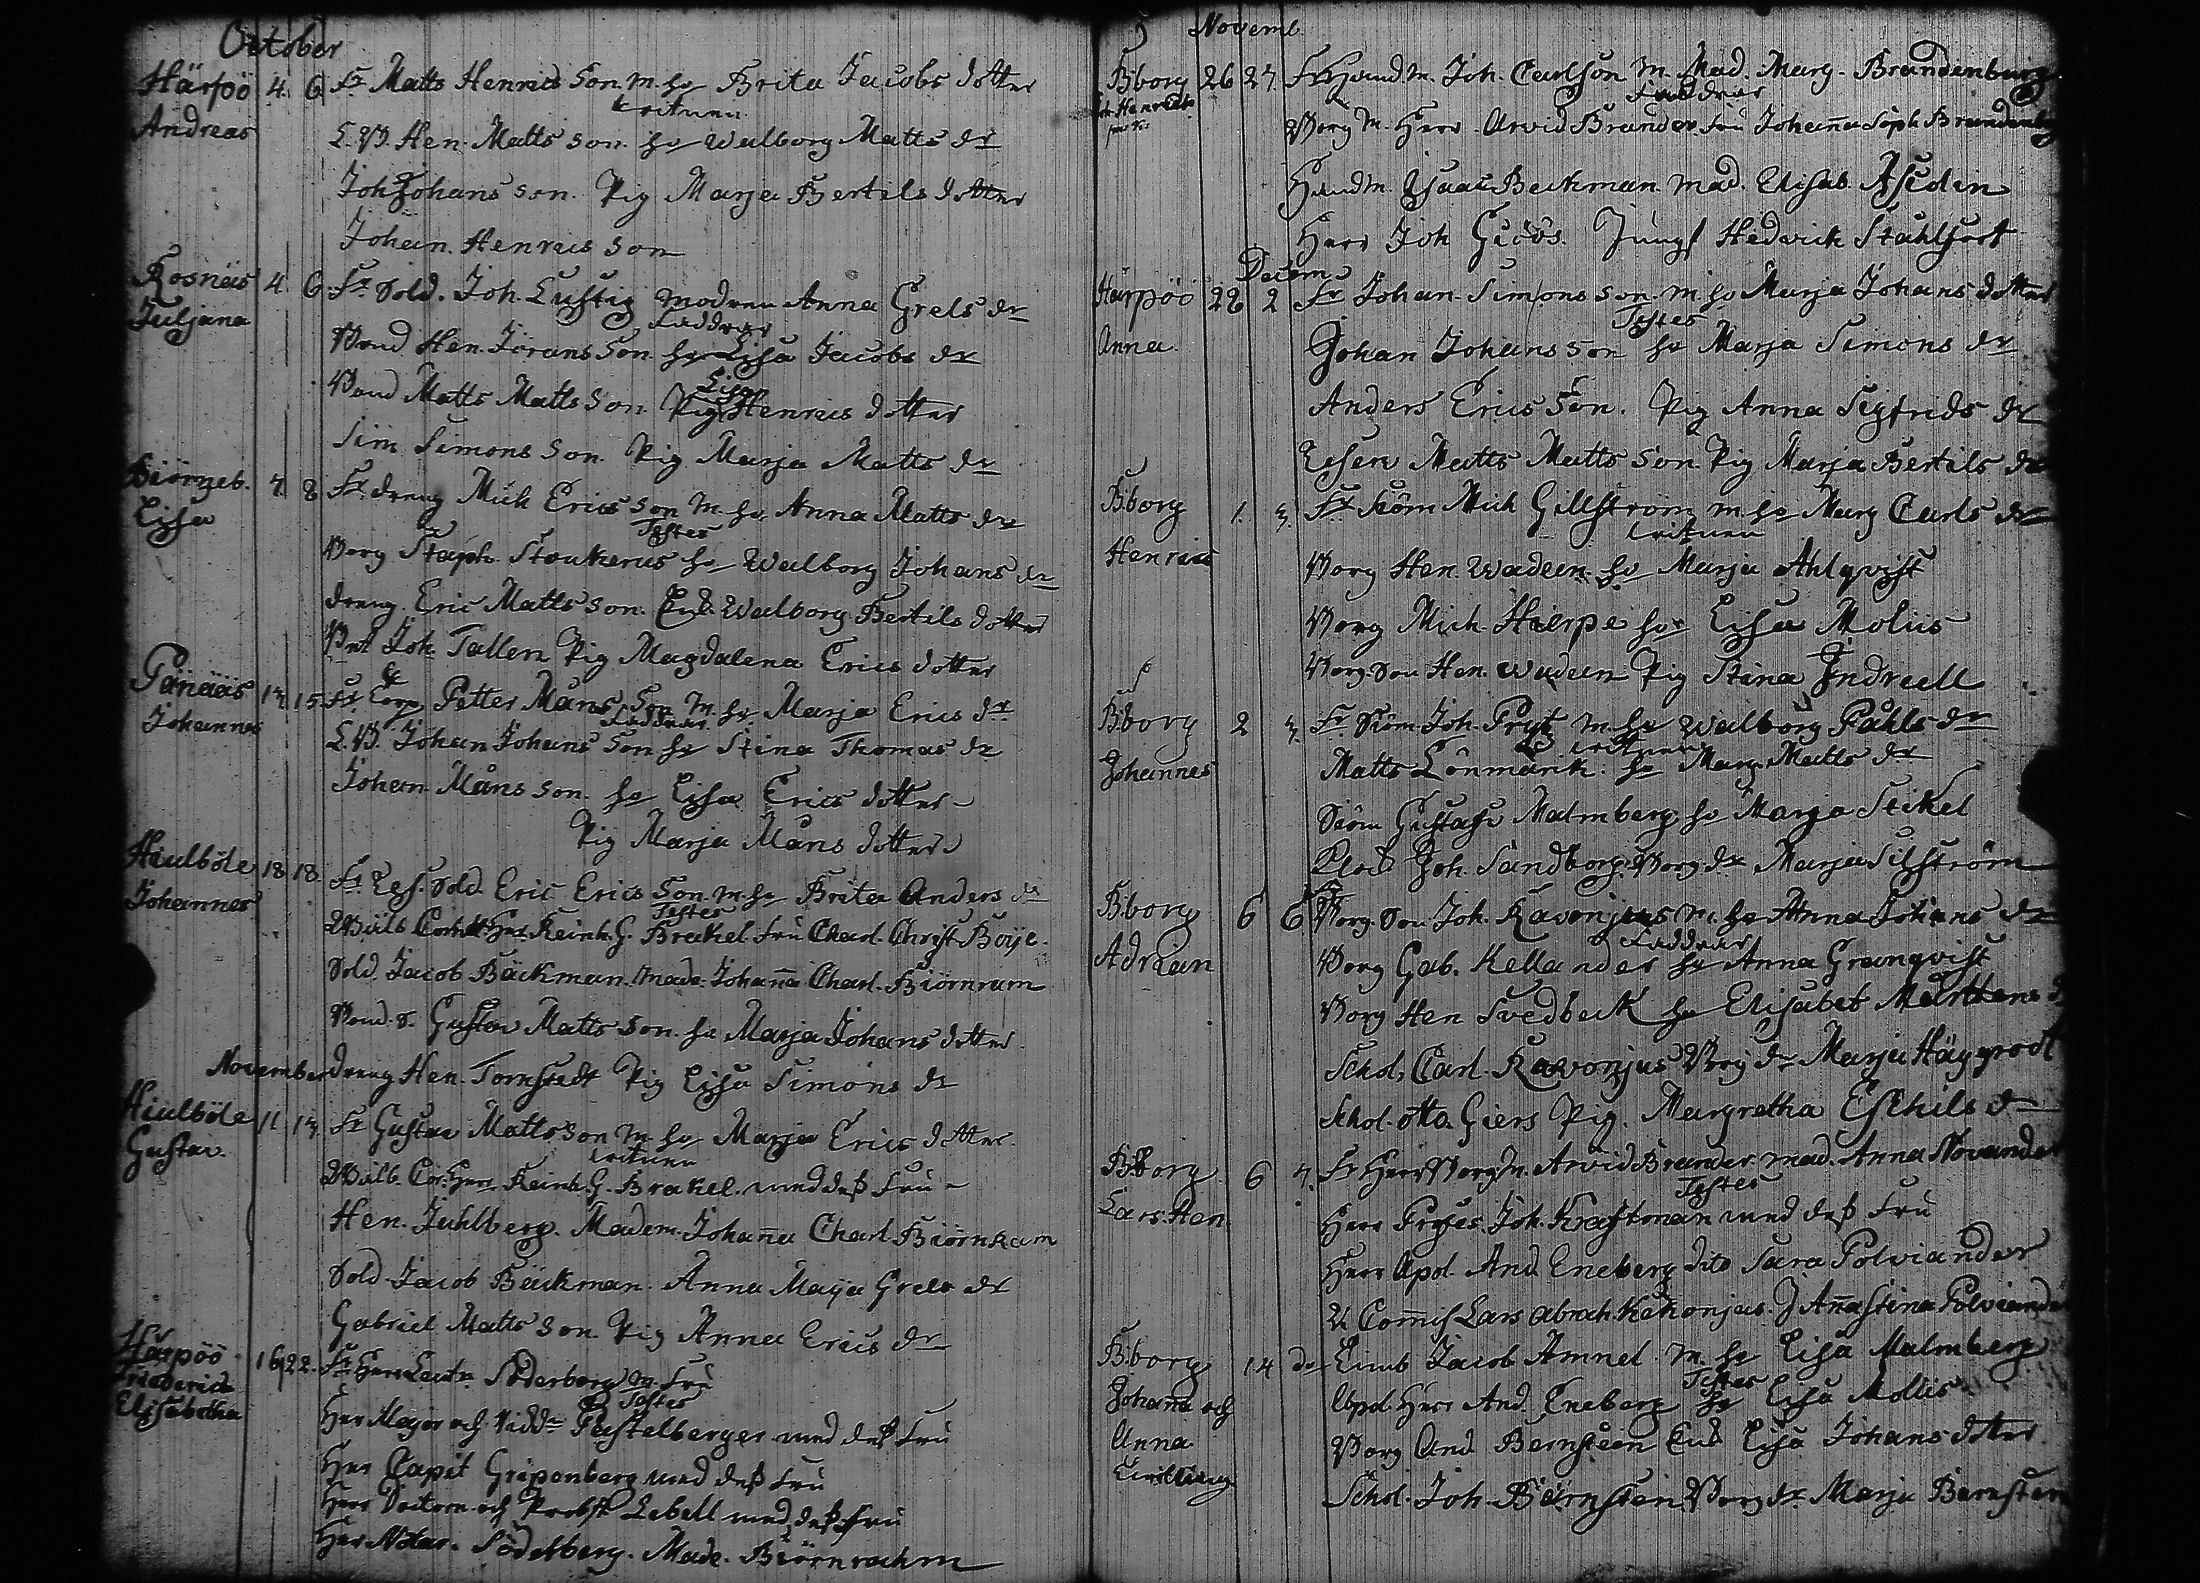 October
Härpö 4. 6 Fr Matts Henrics Son m. ho Brita Jacobs dotter
Andreas
L. B. Hen. Matts son. ho Walborg Matts dr
Joh Johans son. Pig Marja Bertils dotter
Johan. Henrics son
Rosnäs 4. 6. Fr Sold. Joh. Lustig modren Anna Grels dr
Juljana Faddrar
Bond Hen. Jörans Son. ho Lisa Jacobs dr
Bond Matts Matts Son. Pig Lisa Henrics dotter
Sim Simons Son. Pig Marja Matts dr
Biörneb. 7. 8 Fr. dreng Mich Erics son m. ho. Anna Matts dr
Lisa Testes
Borg Staph. Stoukerus ho Walborg Johans dr
dreng. Eric Matts son. Walborg Bertils dotter
Joh. Tallen Pig Magdalena Erics dotter
Pänääs 13. 15. Fr. Corp Petter Måns Son m. ho. Marja Erics dr
Johannes Faddrar
L. B. Johan Johans Son ho Stina Thomas dr
Johan Måns son. ho Lisa Erics dotter
Pig Marja Måns dotter
Hiulböle 18 18. Fr Ref. Sold. Eric Erics Son. m. ho Brita Anders dr
Johannes Testes
Reinh. G. Brakel fru Charl. Christ Boije.
Sold. Jacob Bäckman. made. Johaña Charl. Biörnram
Bond. s. Gustav Matts son. ho Marja Johans dotter
November dreng Hen. Tornstedt Pig Lisa Simons dr
Hiulböle 11 13. Fr Gustav Matts son m. ho Marja Erics dotter.
Gustav.
Cor. Herr Reinh. G. Brakel. med dess fru
Hen. Juhlberg. Madem. Johaña Charl. Biörnram
Sold. Jacob Bäckman. Anna Maja Grels dr
Gabriel Matts son. Pig Anna Erics dr
Härpöö 16 22. Fr Herr Leutn. Söderborg m. fru
Friederich Testes
Elisabetha
Her Major och Ridd Pastelberger med dess fru
Her Capit Gripenberg med dess fru
Herr Doctorn och Probst Lebell med dess fru
Her Notar. Söderberg. Made. Biörnrahm
Novemb.
B:borg 26 27. Fr Handm. Joh. Carlson m. Mad. Marg. Brandenburg
Faddrar
Borg m. Herr. Arvid Brander fru Johaña Soph. Brandenb
Handm. Isaac Beckman. mad. Elisab. Aſcolin
Herr Joh Giöös. Jungf Hedvich Stahlfoot
Decem.
Härpöö 28 2 Fr Johan. Simons son. m. ho Marja Johans dotter
Testes
Anna. Johan Johans son ho Marja Simons dr
Anders Erics Son. Pig Anna Sigfrids dr
Matts Matts son. Pig Marja Bertils dr
B:borg 1. 3. Fr Siöm Mich Gillström m. ho Marg Carls dr
Henrics Borg Hen. Wadeen. ho Marja Ahlqvist
Borg Mich. Hierpe ho Lisa Molius
Borg. Son Hen. Wadeen Pig Stina Indreell
B:borg 2 3. Fr Siöm. Joh. Pryt m. ho Walborg Påhls dr
Johannes Matts Lönmark. ho Marg. Matts dr
Siöm Gustaf Malmberg ho Marja Stikel
Joh. Sandborg. Borg. dr Marja Silström
B:borg 6 6 Fr Borg. Son Joh. Ravonjus m. ho Anna Johans dr
Faddrar
Adrian Borg Gab. Kellander ho Anna Granqvist
Borg Hen Svedbeck ho Elisabet Mårtens d
Schol. Carl. Ravonjus Borg dr Marja Häggrodt
Schol. Otto. Giers Pig. Margretha Eschils dr
B:borg 6 7. Fr Herr Borg m. Arvid Brander. mad. Anna Novander
Testes
Lars. Hen Herr Joh. Kraftman med dess fru
Herr Apol. And. Eneberg dito Sara Polviander
V. Comis Lars Abrah. Kekonjus. J Anastina Polviande
B:borg 14 do Jacob Amnel m. ho Lisa Malmberg
Testes
Johana och Apol. Herr And. Eneberg ho Lisa Mollis
Anna Borg And. Bernsteen Lisa Johans dotter
Schol. Joh. Bernsten. Borg dr Marja Bernsten